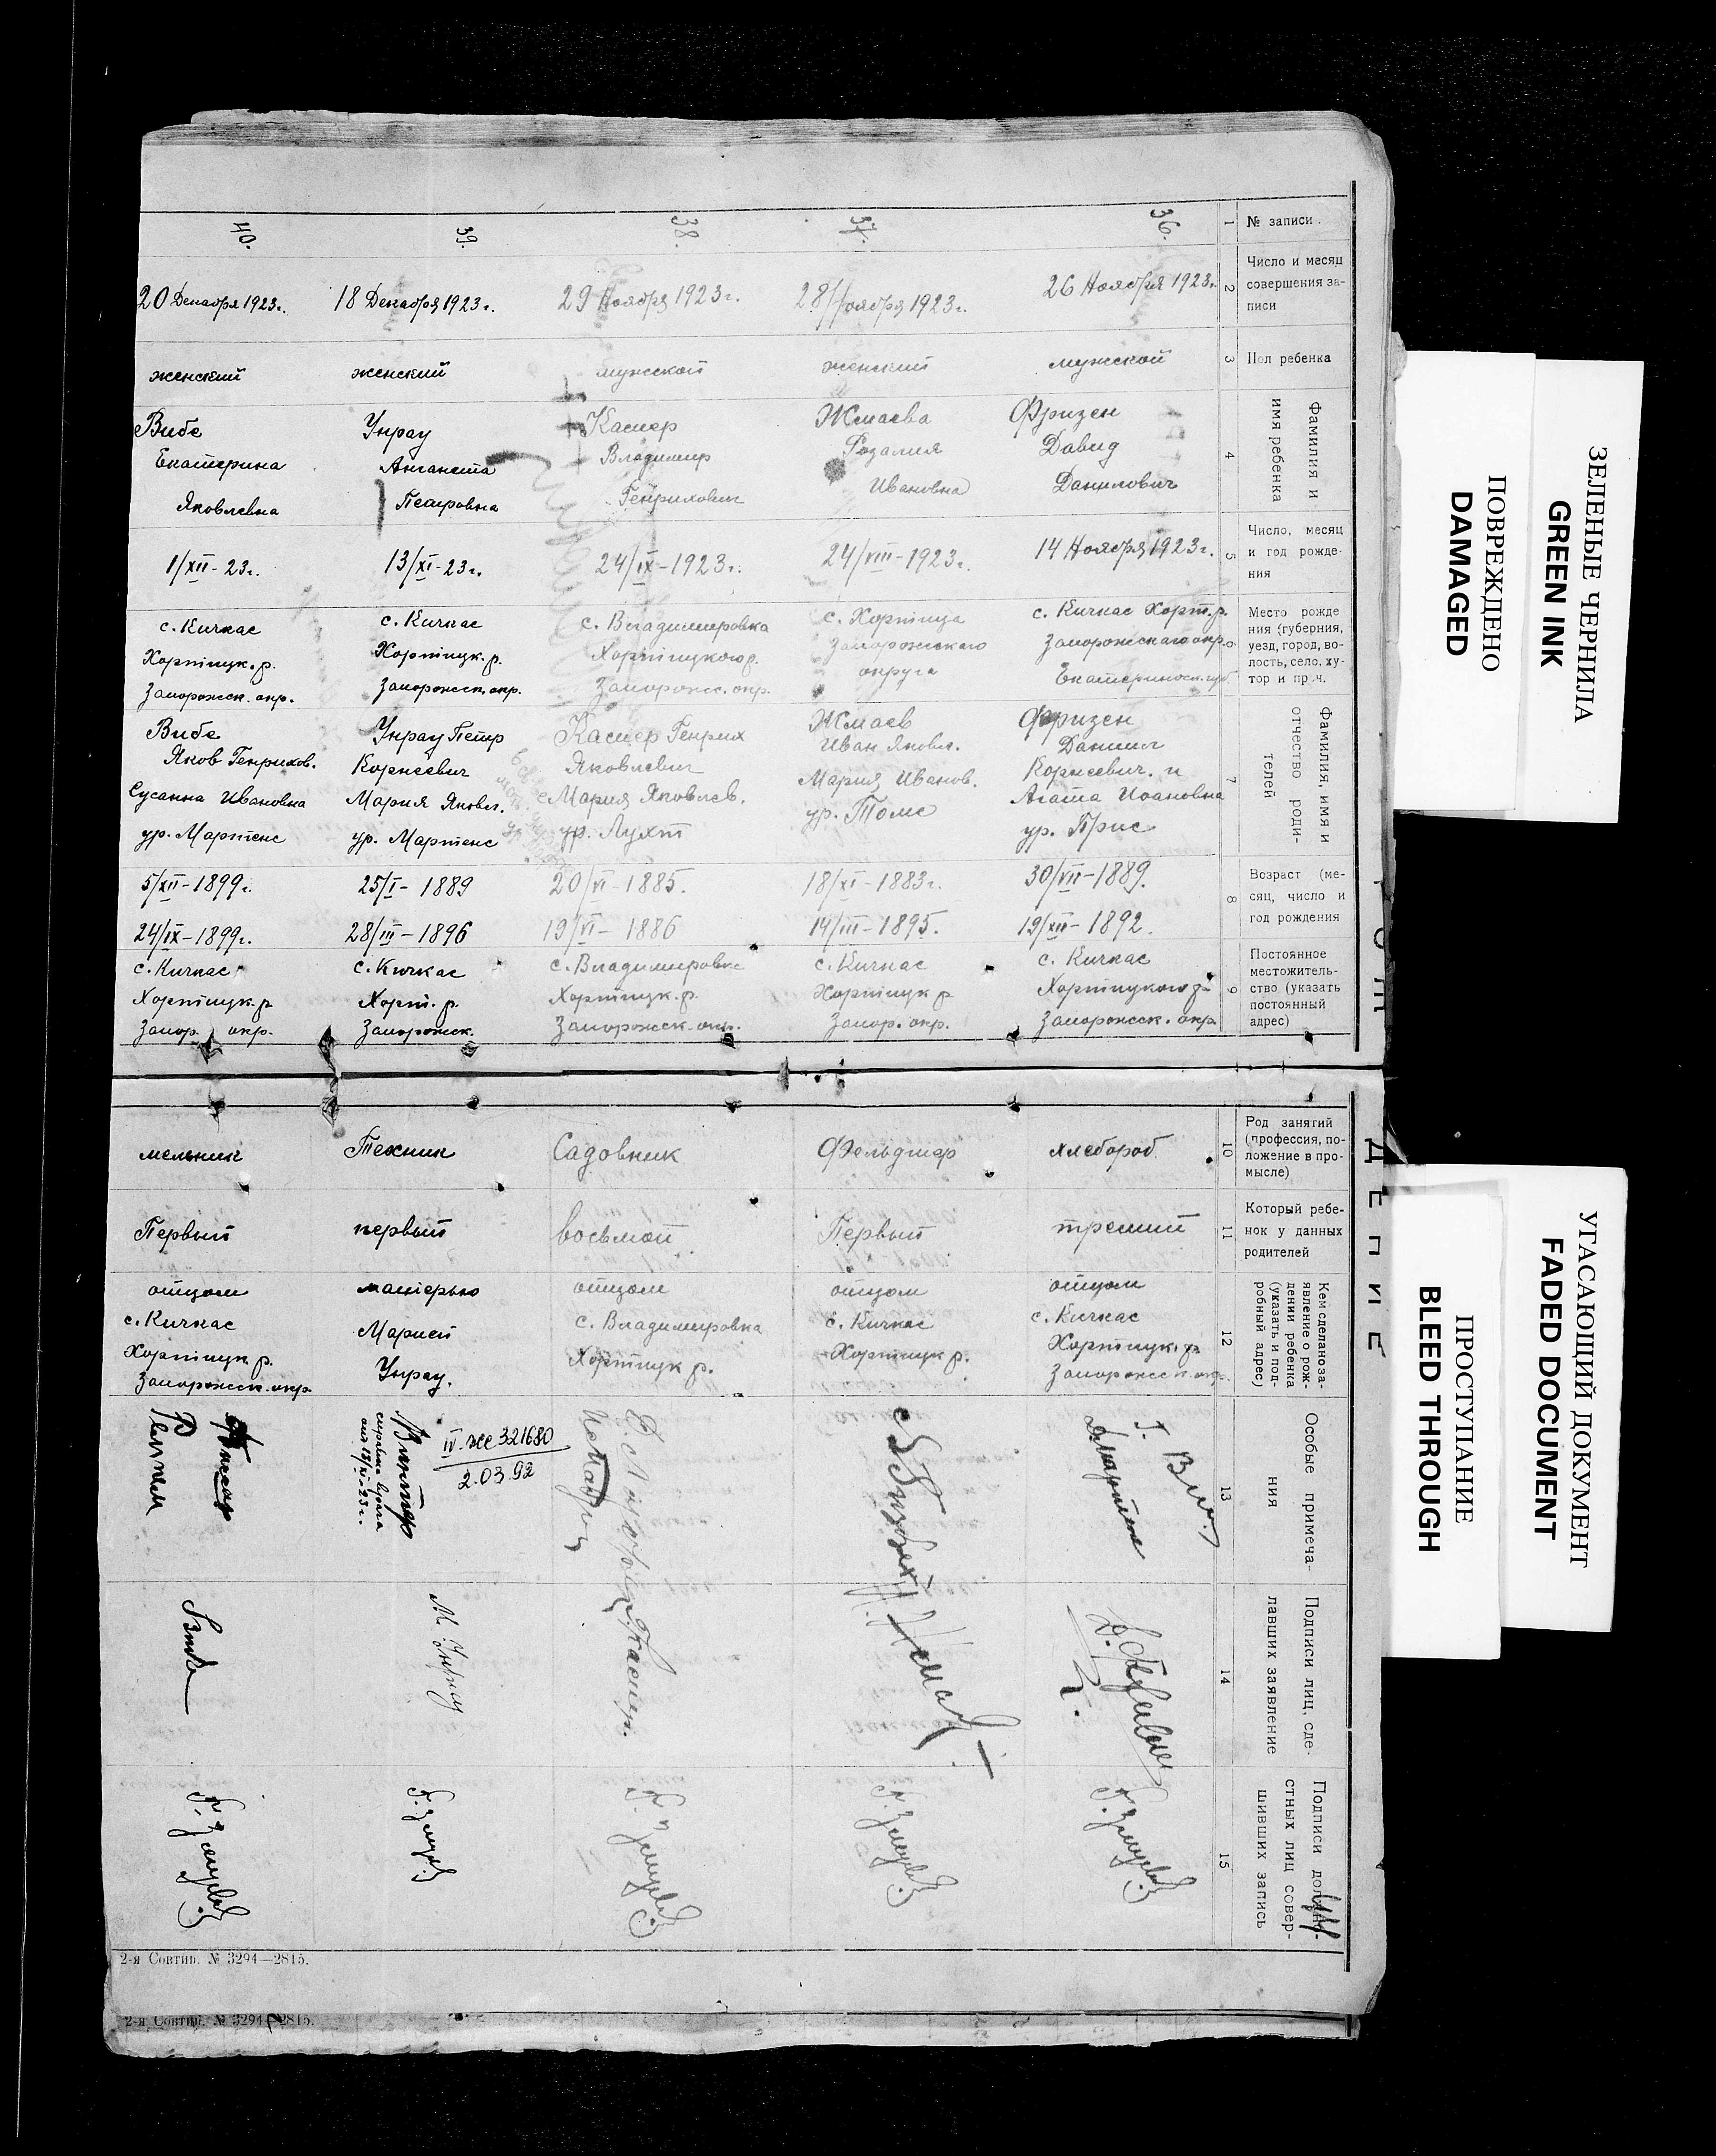 № записи
1
Число и месяц
совершения за-
писи
2
Пол ребенка
3
Фамилия и
имя ребенка
4
Число, месяц
и год рожде-
ния
5
Место рожде
ния (губерния,
уезд, город, во-
лость, село, ху-
тор и проч.
6
Фамилия, имя и
отчество роди-
телей
7
Возраст (ме-
сяц, число и
год рождения
8
Постоянное
местожитель-
ство (указать
постоянный
адрес)
9
Род занятий
(профессия, по-
ложение в про-
мысле)
10
Который ребе-
нок у данных
родителей
11
Кем сделано за-
явление о рож-
дении ребенка
(указать и под-
робный адрес)
12
Особые примеча-
ния
13
Подписи лиц, сде-
лавших заявление
14
Подписи должн-
стных лиц совер-
шивших запись
15
36.
26 Ноября 1923г.
мужской
Фризен
Давид
Данилович
14 Ноября 1923г.
с. Кичкас Хорт. р.
Запорожского окр.
Фризен
Даниил
Корнеевич. и
Агата Ивановна
ур. Прис
30/VII-1889.
19/XII-1892.
с. Кичкас
Хортицкого р.
Запорожск. окр.
хлебороб
третий
отцом
с. Кичкас
Хортицк. р.
Запорожск. окр.
37.
28 Ноября 1923г.
женский
Жмаева
Розалия
Ивановна
24/VIII-1923г.
с. Хортица
Запорожского
округа
Жмаев
Иван Яковл.
Мария Иванов.
ур. Томс
18/XI-1883г.
14/III-1895.
с. Кичкас
Хортицк р.
Запор. окр.
Фельдшер
Первый
отцом
с. Кичкас
Хортицк р.
38.
29 Ноября 1923г.
мужской
Каспер
Владимир
Генрихович
24/IX-1923г.
с. Владимировка
Хортицкого р.
Запорожск. окр.
Каспер Генрих
Яковлевич
Мария Яковлев.
ур. Лухт
20/VI-1885.
19/VI-1886
с. Владимировка
Хортицк. р.
Запорожск. окр.
Садовник
восьмой
отцом
с. Владимировка
Хортицк р.
39.
18 Декабря 1923г.
женский
Унрау
Анганета
Петровна
13/XI-23г.
с. Кичкас
Хортицк. р.
Запорожск. окр.
Унрау Петр
Корнеевич
Мария Яковл.
ур. Мартенс
25/I-1889
28/III-1896
с. Кичкас
Хорт. р.
Запорожск.
Техник
первый
матерью
Марией
Унрау.
IV-же 321680
2.03.92
М. Унрау
40.
20 Декабря 1923г.
женский
Вибе
Екатерина
Яковлевна
1/XII-23г.
с. Кичкас
Хортицк. р.
Запорожск. окр.
Вибе
Яков Генрихов.
Сусанна Ивановна
ур. Мартенс
5/XII-1899г.
24/IX-1899г.
с. Кичкас
Хортицк. р
Запор. окр.
мельник
Первый
отцом
с. Кичкас
Хортицк р.
Запорожск. окр.
2-я Совтип. № 3294—2815.
2-я Совтип. № 3294—2815.
ЗЕЛЕНЫЕ ЧЕРНИЛА
GREEN INK
ПОВРЕЖДЕНО
DAMAGED
УГАСАЮЩИЙ ДОКУМЕНТ
FADED DOCUMENT
ПРОСТУПАНИЕ
BLEED THROUGH